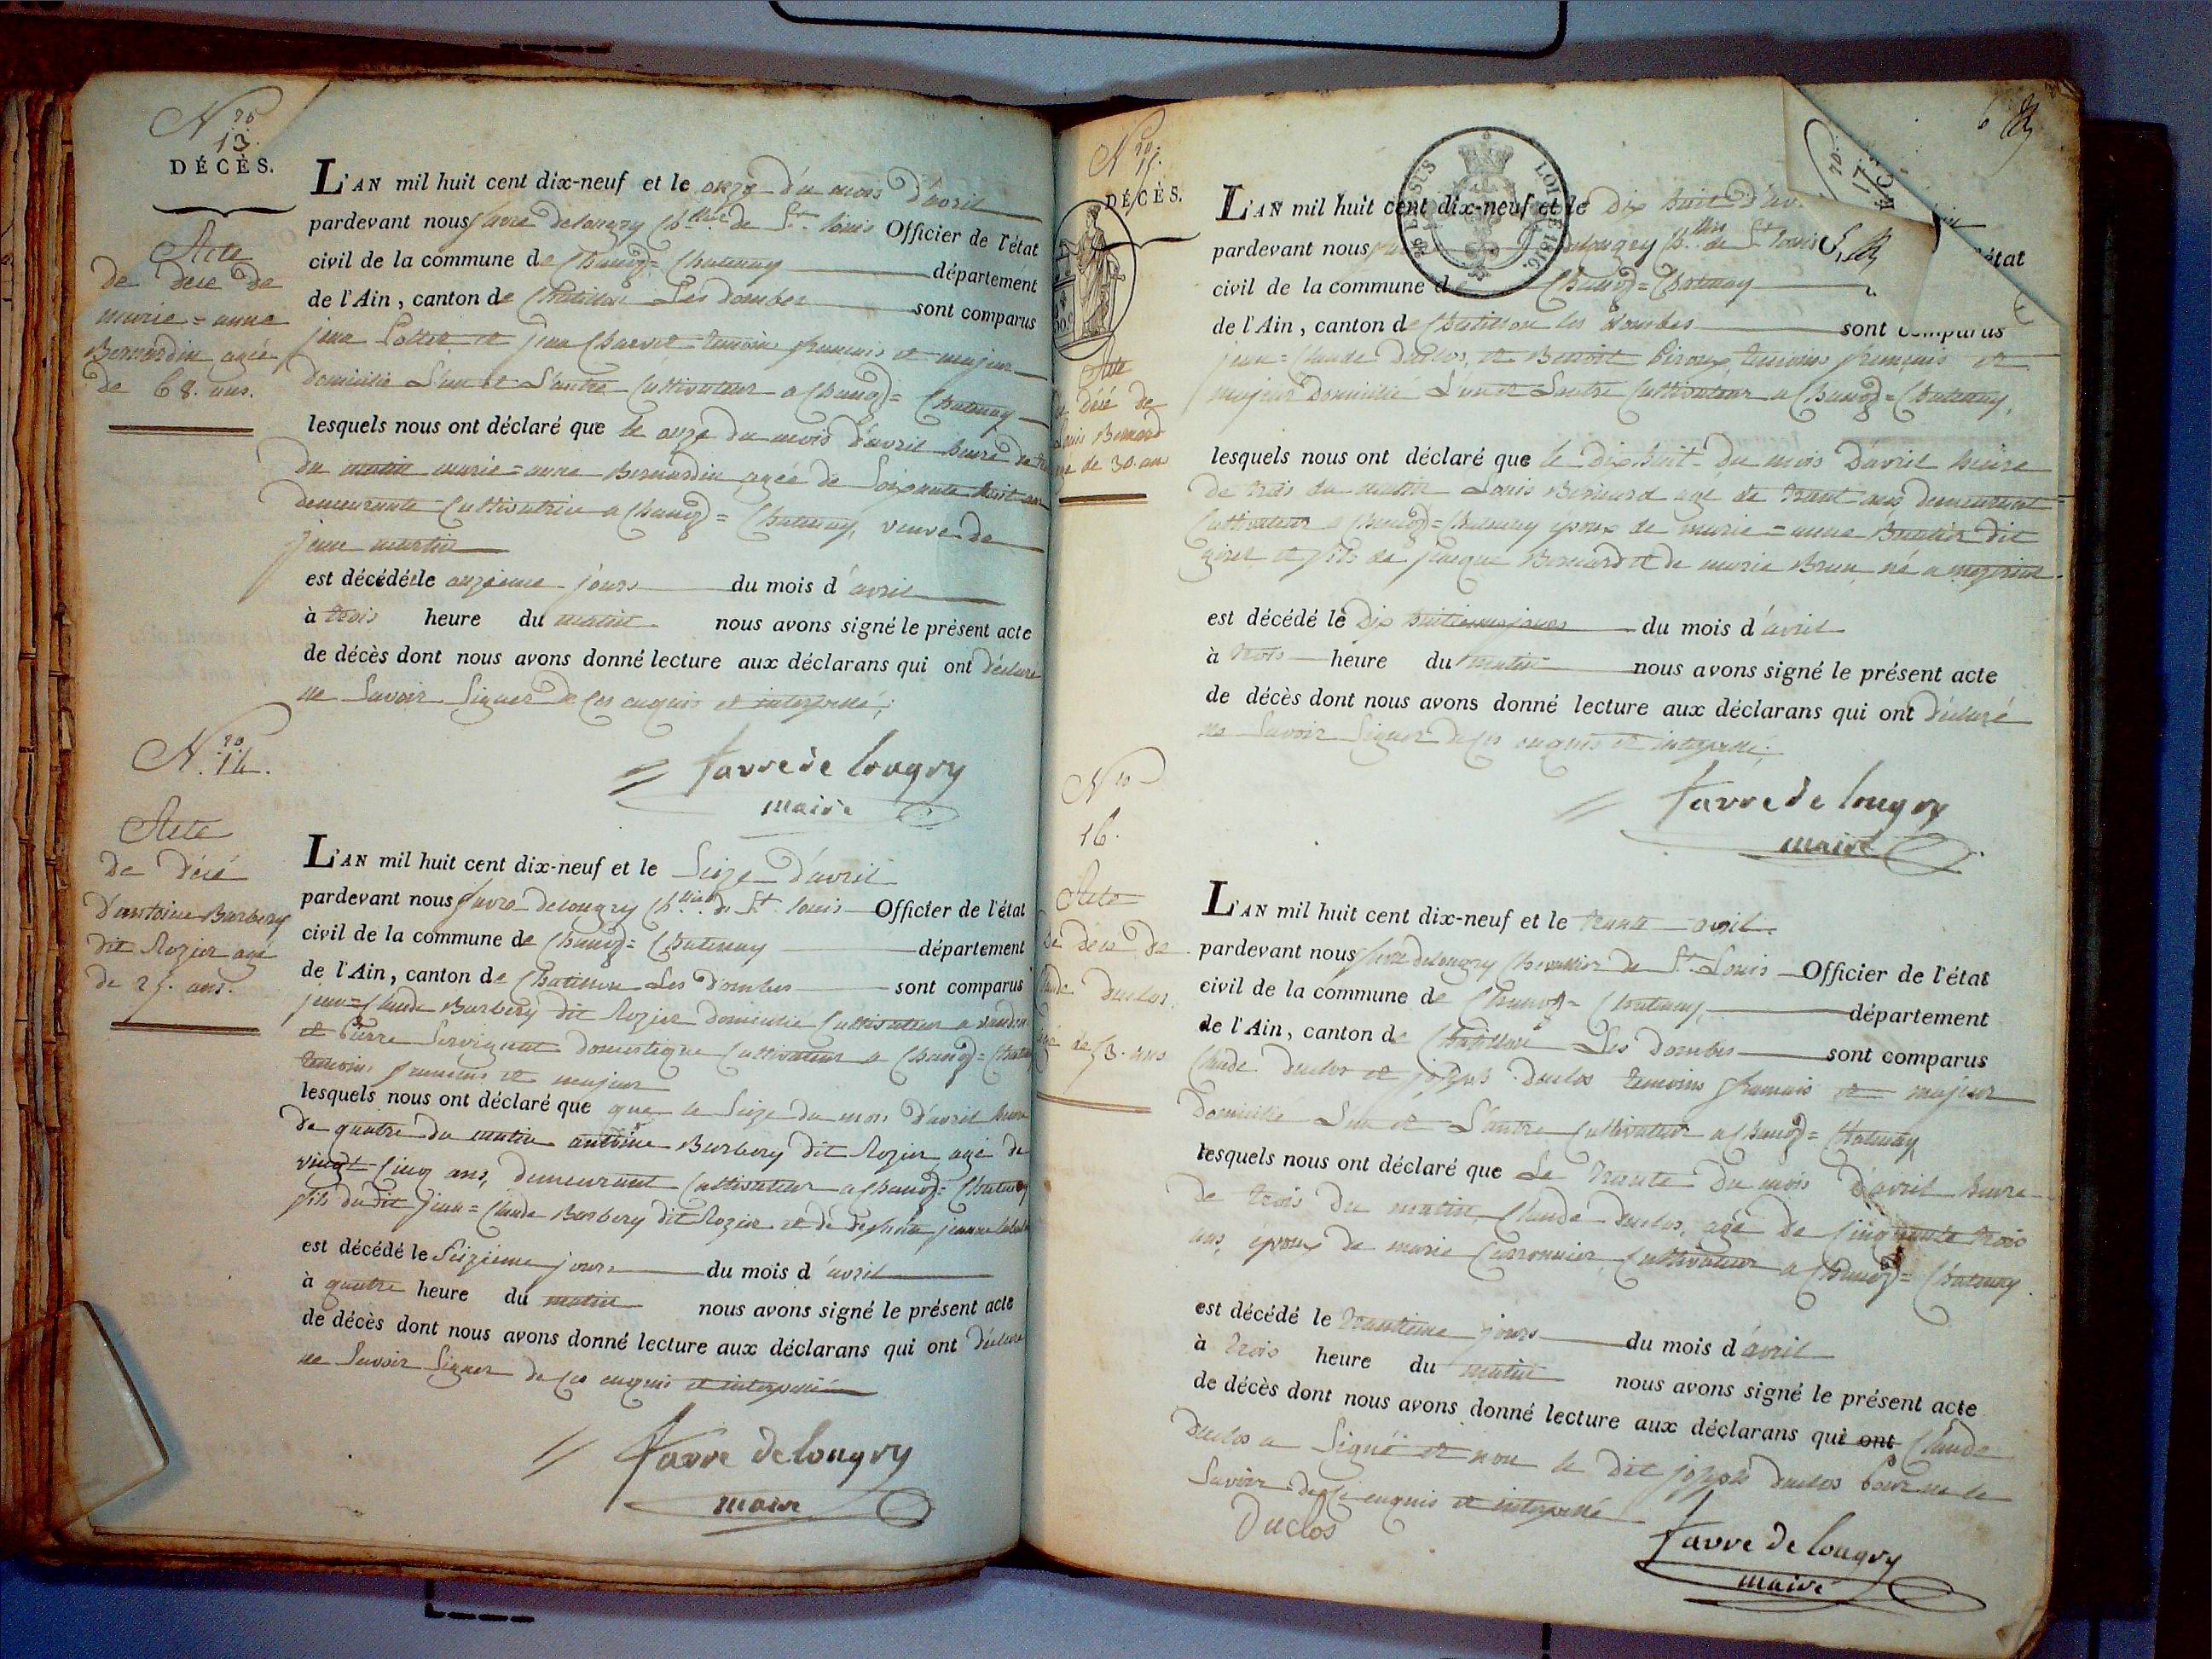 N.ro
13.
DÉCÈS.
Acte
de decé de
marie=anne
Bernardin agée
de 68. ans.
L'AN mil huit cent dix-neuf et le onze du mois d'avril
pardevant nous favre delongry de St. louis Officier de l'état
civil de la commune de Chatenay département
de l'Ain, canton de Chatillon Les dombes sont comparus
jean et jean Charvet temoins français et majeur
domicilié L'un et L'autre Cultivateur a Chatenay
lesquels nous ont déclaré que le onze du mois d'avril heure de
du matin marie=anne Bernardin agée de Soixante huit ans
demeurante Cultivatrice a Chatenay, veuve de
jean martin
est décédé le onzieme jours du mois d'avril
à trois heure du matin nous avons signé le présent acte
de décès dont nous avons donné lecture aux déclarans qui ont déclaré
ne Savoir Signer de ces enquis et interpellé;
favre de longry
maire
N.ro
14.
Acte
de décé
d'antoine Barbery
dit Rozier agé
de 25. ans.
L'AN mil huit cent dix-neuf et le Seize d'avril
pardevant nous favre delongry de St. louis Officier de l'état
civil de la commune de Chatenay département
de l'Ain, canton de Chatillon Les dombes sont comparus
jean=Claude Barbery dit Rozier domicilié Cultivateur a
et Pierre Servignat domestique Cultivateur a
temoins français et majeur
lesquels nous ont déclaré que que le Seize du mois d'avril heure
de quatre du matin antoine Barbery dit Rozier, agé de
vingt-Cinq ans, demeurant Cultivateur a Chatenay
fils du dit jean=Claude Barbery dit Rozier et de jeanne
est décédé le Seizieme jours du mois d'avril
à quatre heure du matin nous avons signé le présent acte
de décès dont nous avons donné lecture aux déclarans qui ont déclaré
ne Savoir Signer de ces enquis et interpellé
favre de longry
maire
N.ro
15.
DÉCÈS.
Acte
de décé de
Louis Bernard
agé de 30. ans
L'AN mil huit cent dix-neuf et le dix huit
pardevant nous delongry de St. louis
état
civil de la commune de Chatenay
de l'Ain, canton de Chatillon les dombes sont comparus
jean=Claude Duclos, et Benoit temoins français et
majeur domicilié L'un et L'autre Cultivateur a Chatenay,
lesquels nous ont déclaré que le dix huit du mois d'avril heure
de trois du matin Louis Bernard agé de trent ans demeurant
Cultivateur a Chatenay époux de marie=anne dit
et fils de jacque Bernard et de marie Brun, né a
est décédé le dix huitieme jours du mois d'avril
à trois heure du matin nous avons signé le présent acte
de décès dont nous avons donné lecture aux déclarans qui ont déclaré
ne Savoir Signer de ces enquis et interpellé;
favre de longry
maire
N.ro
16.
Acte
de déce de
Claude Duclos
agé de 53. ans
L'AN mil huit cent dix-neuf et le trante avril
pardevant nous favre delongry Chevallier de St. Louis Officier de l'état
civil de la commune de Chatenay, département
de l'Ain, canton de Chatillon Les dombes sont comparus
Claude duclos et joseph duclos temoins francais et majeur
domicilié L'un et L'autre Cultivateur a Chatenay
lesquels nous ont déclaré que Le trante du mois d'avril heure
de trois du matin, Claude duclos, agé de Cinquante trois
ans, époux de marie Carronnier, Cultivateur a Chatenay.
est décédé le trantieme jours du mois d'avril
à trois heure du matin nous avons signé le présent acte
de décès dont nous avons donné lecture aux déclarans qui ont Claude
duclos a Signé et non le dit joseph duclos pour ne le
Savoir de ce enquis et interpellé
Duclos
favre de longry
maire